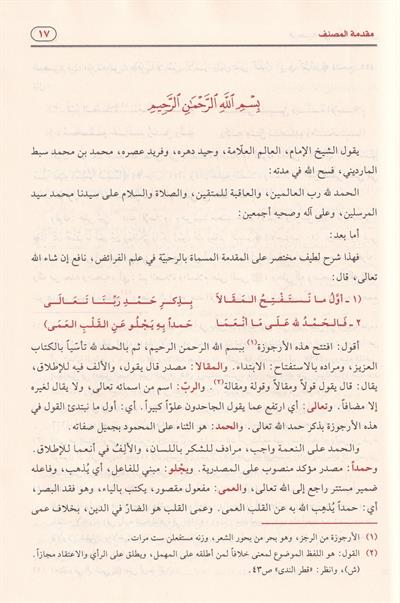 مقدمة المصنف
١٧
بِسْمِ اللَّهِ الرَّحْمَٰنِ الرَّحِيمِ
يقول الشيخ الإمام، العالم العلّامة، وحيد دهره، وفريد عصره، محمد بن محمد سبط
المارديني، فسح الله في مدته:
الحمد لله رب العالمين، والعاقبة للمتقين، والصلاة والسلام على سيدنا محمد سيد
المرسلين، وعلى آله وصحبه أجمعين:
أما بعد:
فهذا شرح لطيف مختصر على المقدمة المسماة بالرحبيّة في علم الفرائض، نافع إن شاء الله
تعالى، قال:
(١ ـ أَوَّلُ مَا نَسْتَفْتِحُ المَقَالَا بِذِكرِ حَمْدِ رَبِّنَا تَعَالَى
٢ ـ فَالحَمْدُ لله عَلَى مَا أَنْعَمَا حَمداً بِهِ يَجْلُو عَنِ القَلْبِ العَمَى)
أقول: افتتح هذه الأرجوزة(١) ببسم الله الرحمن الرحيم، ثم بالحمد لله تأسّياً بالكتاب
العزيز، ومراده بالاستفتاح: الابتداء. والمقالا: مصدر قال يقول، والألف فيه للإطلاق،
يقال: قال يقول قولاً ومقالاً وقولة ومقالة(٢). والربّ: اسم من اسمائه تعالى، ولا يقال لغيره
إلا مضافاً. وتعالى: أي ارتفع عما يقول الجاحدون علوّاً كبيراً. أي: أول ما نبتدئ القول في
هذه الأرجوزة بذكر حمد الله تعالى. والحمد: هو الثناء على المحمود بجميل صفاته.
والحمد على النعمة واجب، مرادف للشكر باللسان، والألِفُ في أنعما للإطلاق.
وحمداً: مصدر مؤكد منصوب على المصدرية. ويجْلو: مبني للفاعل، أي يُذهب، وفاعله
ضمير مستتر راجع إلى الله تعالى، والعمى: مفعول مقصور، يكتب بالياء، وهو فقد البصر،
أي: حمداً يُذهِب الله به عن القلب العمى. وعمى القلب هو الضارّ في الدين، بخلاف عمى
(١) الأرجوزة من الرجز، وهو بحر من بحور الشعر، وزنه مستفعلن ست مرات.
(٢) القول: هو اللفظ الموضوع لمعنى خلافاً لمن أطلقه على المهمل، ويطلق على الرأي والاعتقاد مجازاً.
(ش)، وانظر: «قطر الندى» ص٤٣.